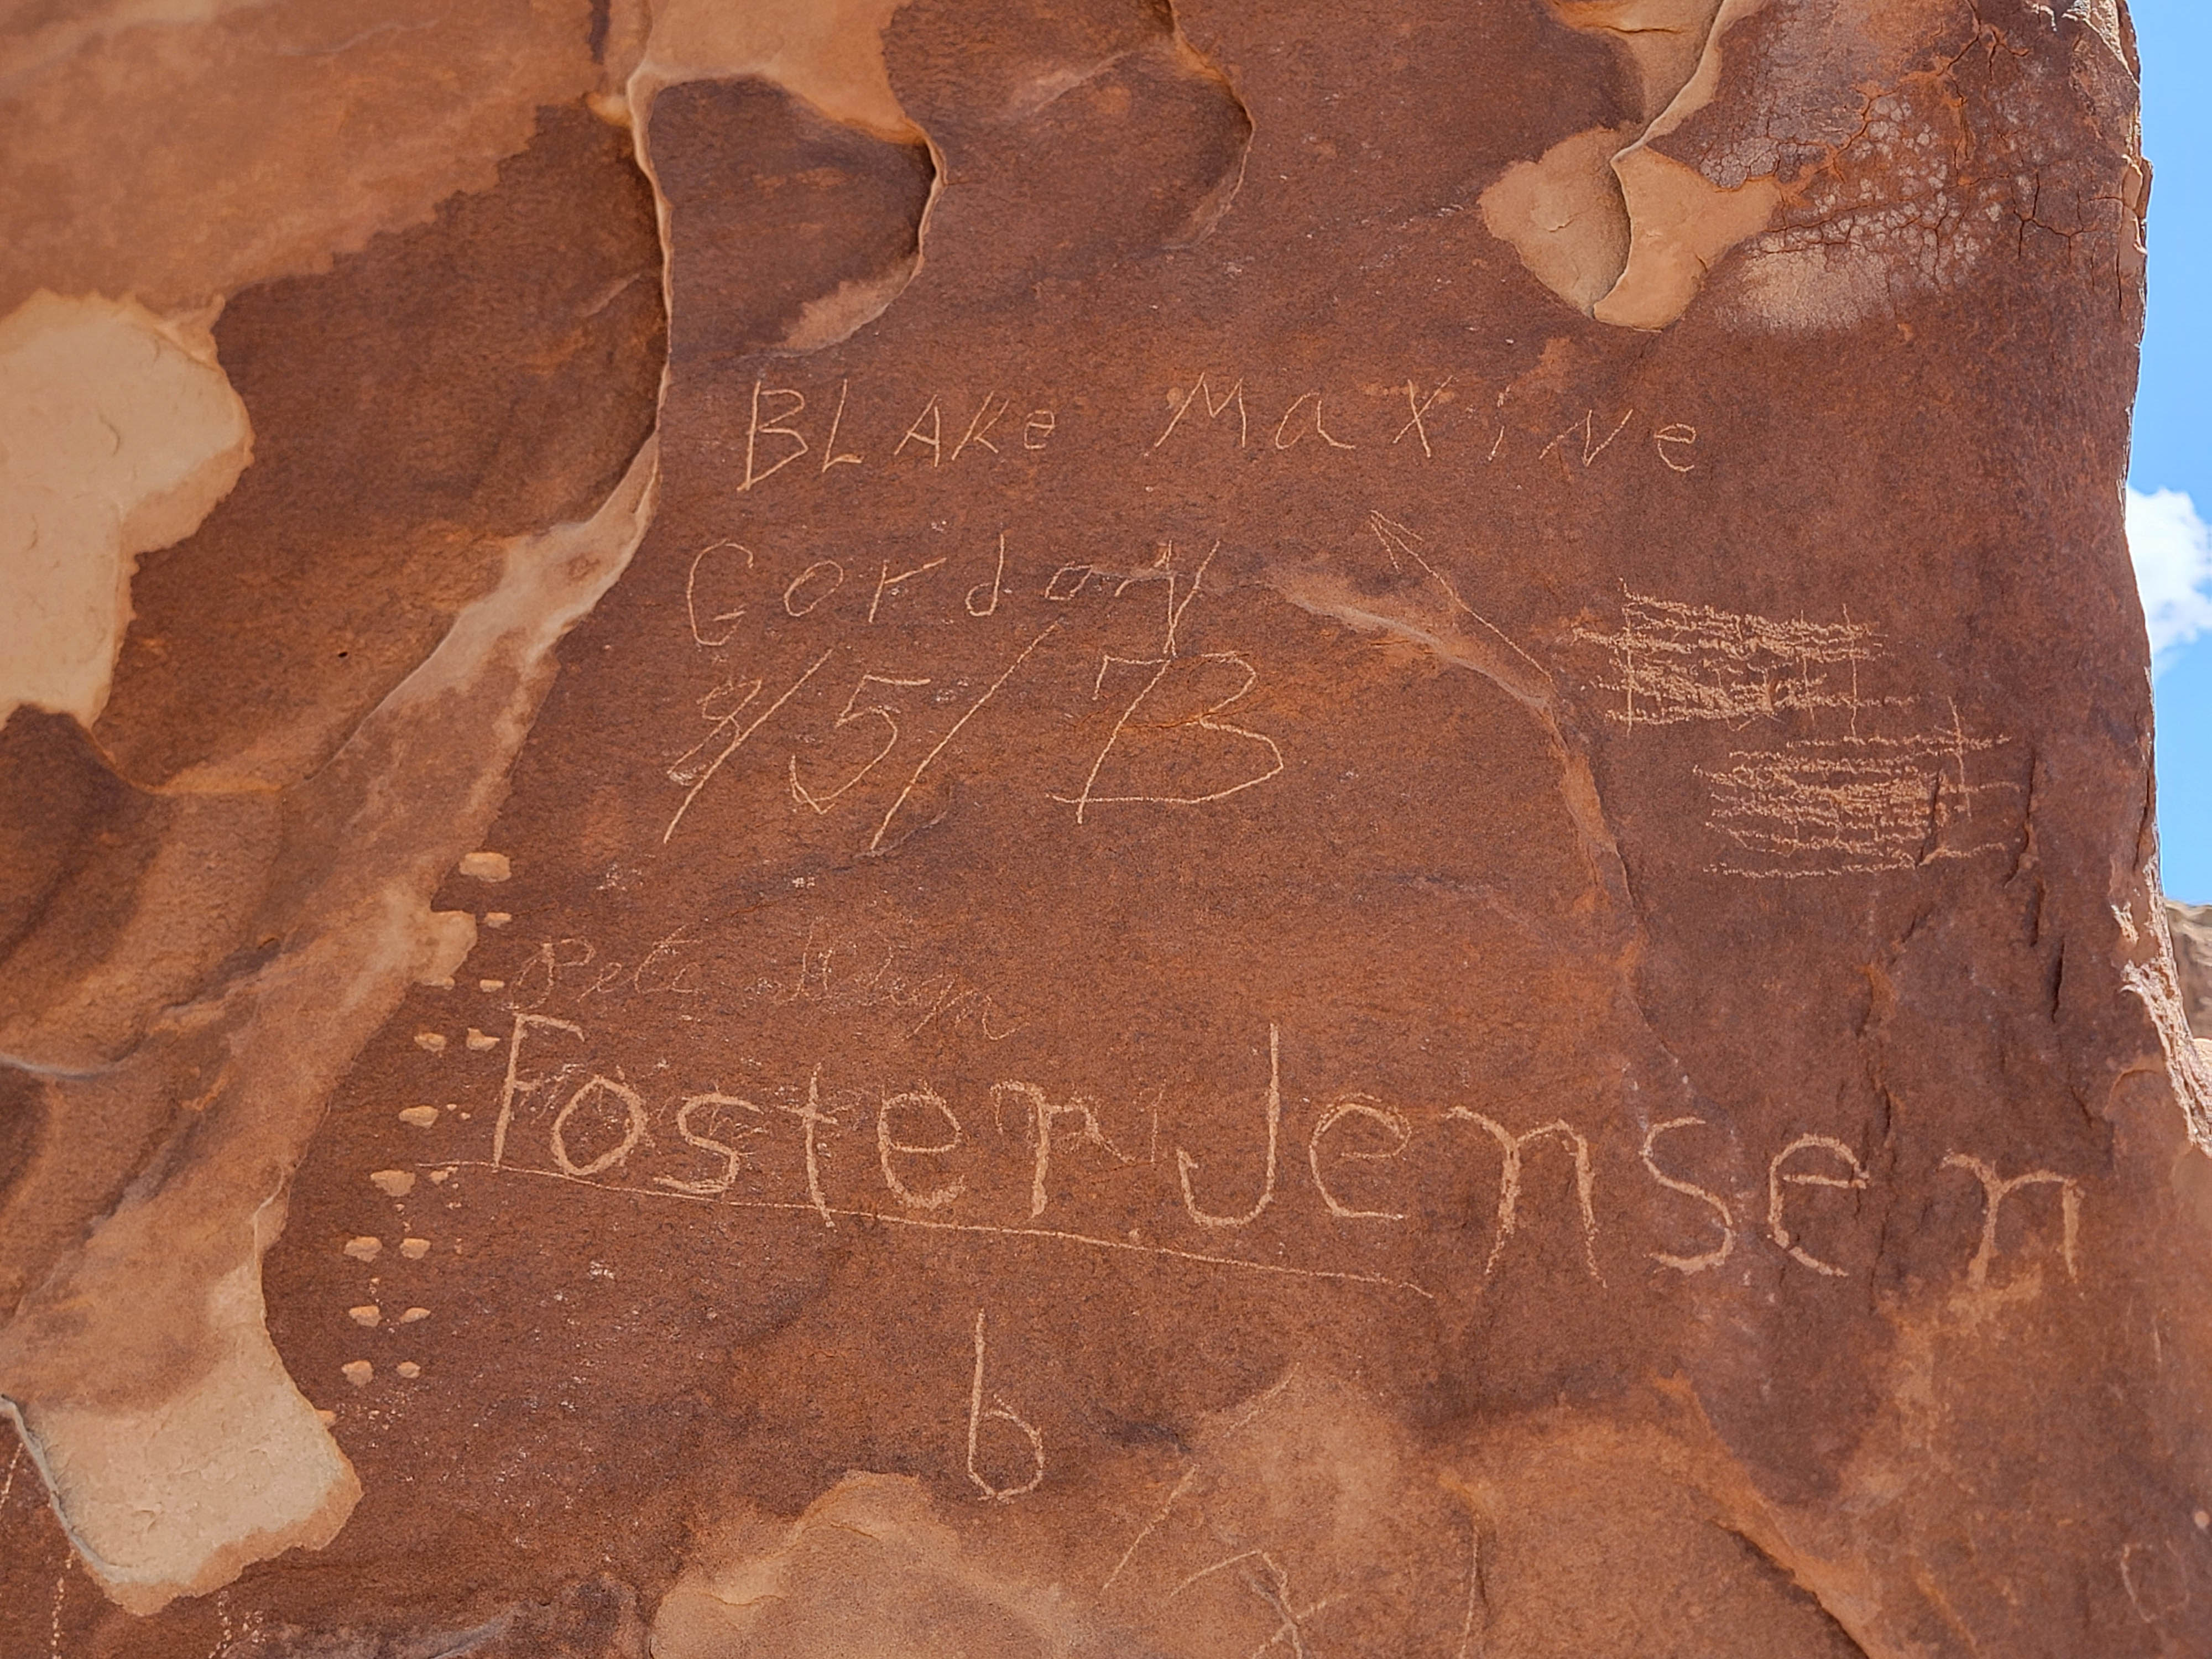 BLAKe MaXiNe
Gordon
9/5/73
Pete
Foster Jensen
6